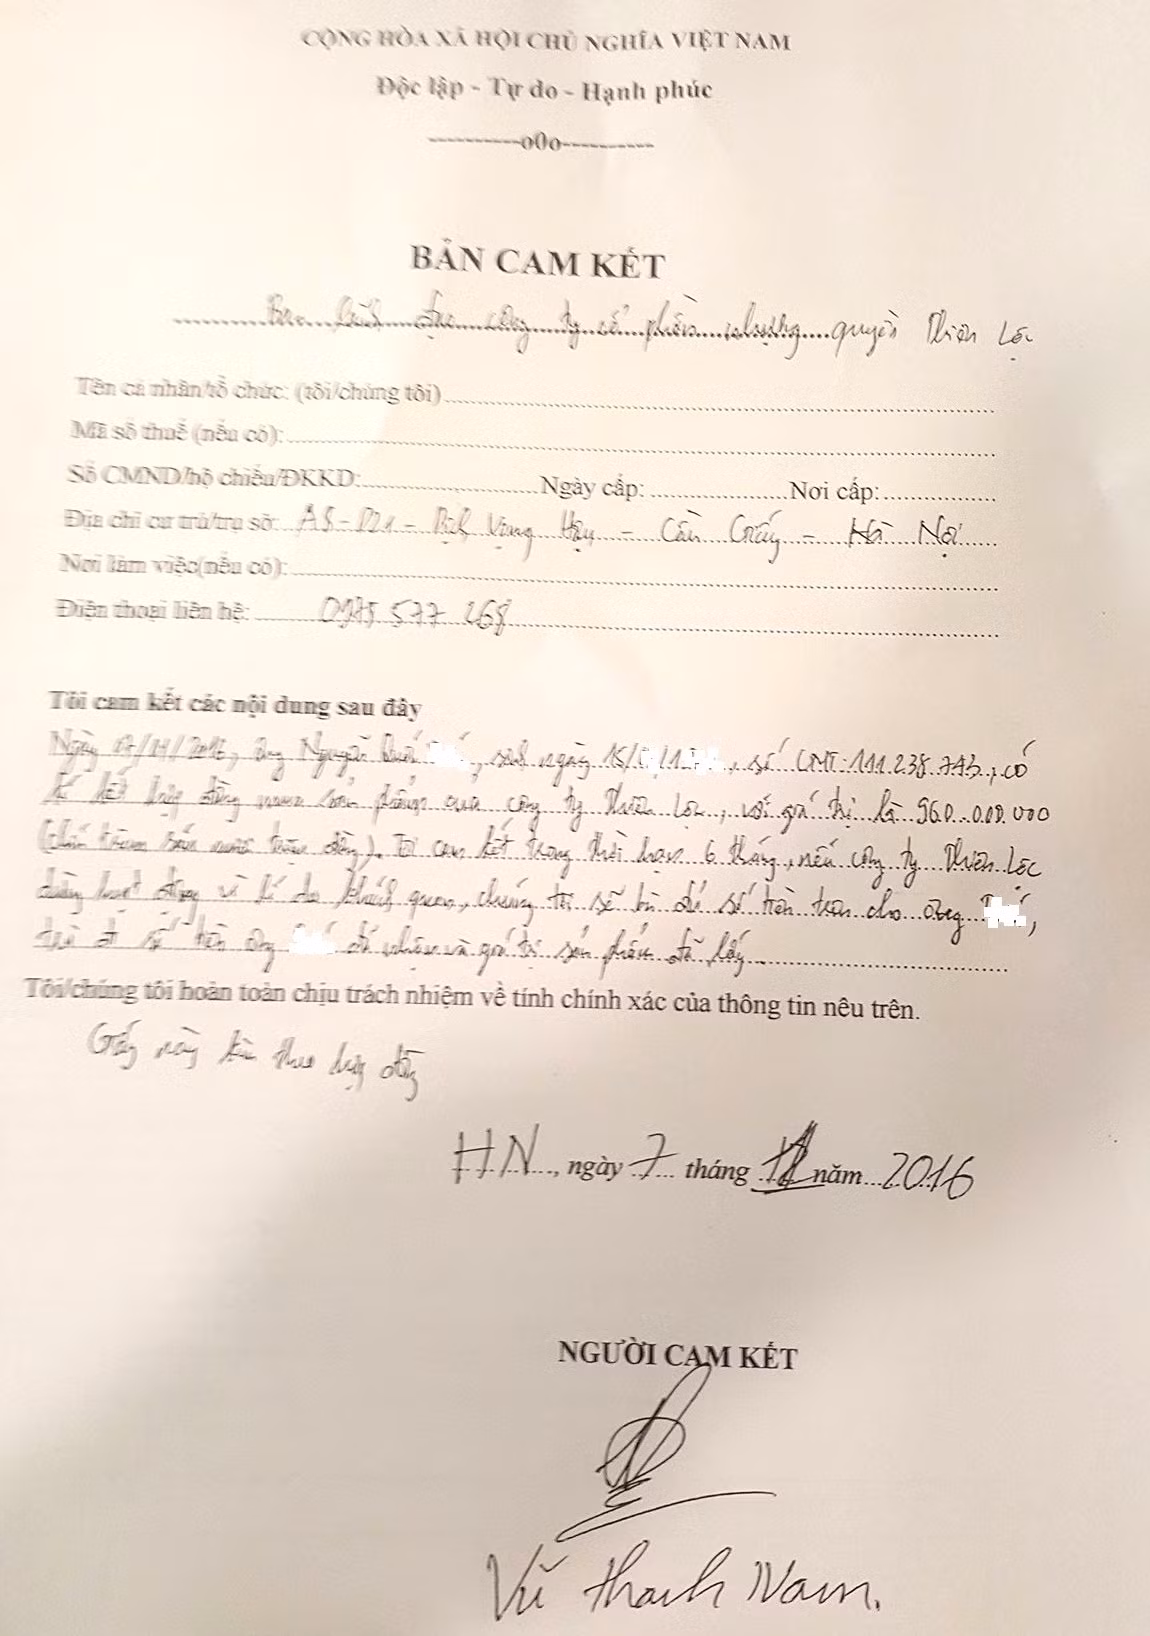 CỘNG HÒA XÃ HỘI CHỦ NGHĨA VIỆT NAM
Độc lập - Tự do - Hạnh phúc
----------o0o----------
BẢN CAM KẾT
công ty cổ phần nhượng quyền Thiên Lộc
Tên cá nhân/tổ chức: (tôi/chúng tôi)
Mã số thuế (nếu có):
Số CMND/hộ chiếu/ĐKKD: Ngày cấp: Nơi cấp:
Địa chỉ cư trú/trụ sở: A5 - D21 - Dịch Vọng Hậu - Cầu Giấy - Hà Nội
Nơi làm việc(nếu có):
Điện thoại liên hệ: 0975 577 268
Tôi cam kết các nội dung sau đây
Ngày /2016, ông Nguyễn , sinh ngày 15/ , số CMT: 111.238.743, có
kí kết hợp đồng mua sản phẩm của công ty Thiên Lộc, với giá trị là 960.000.000
(Chín trăm sáu mươi triệu đồng). Tôi cam kết trong thời hạn 6 tháng, nếu công ty Thiên Lộc
dừng hoạt động vì lí do khách quan, chúng tôi sẽ bù đủ số tiền trên cho ông ,
trừ đi số tiền ông đã nhận và giá trị sản phẩm đã lấy
Tôi/chúng tôi hoàn toàn chịu trách nhiệm về tính chính xác của thông tin nêu trên.
Giấy này kèm theo hợp đồng
HN, ngày 7 tháng năm 2016
NGƯỜI CAM KẾT
Vũ Thanh Nam.